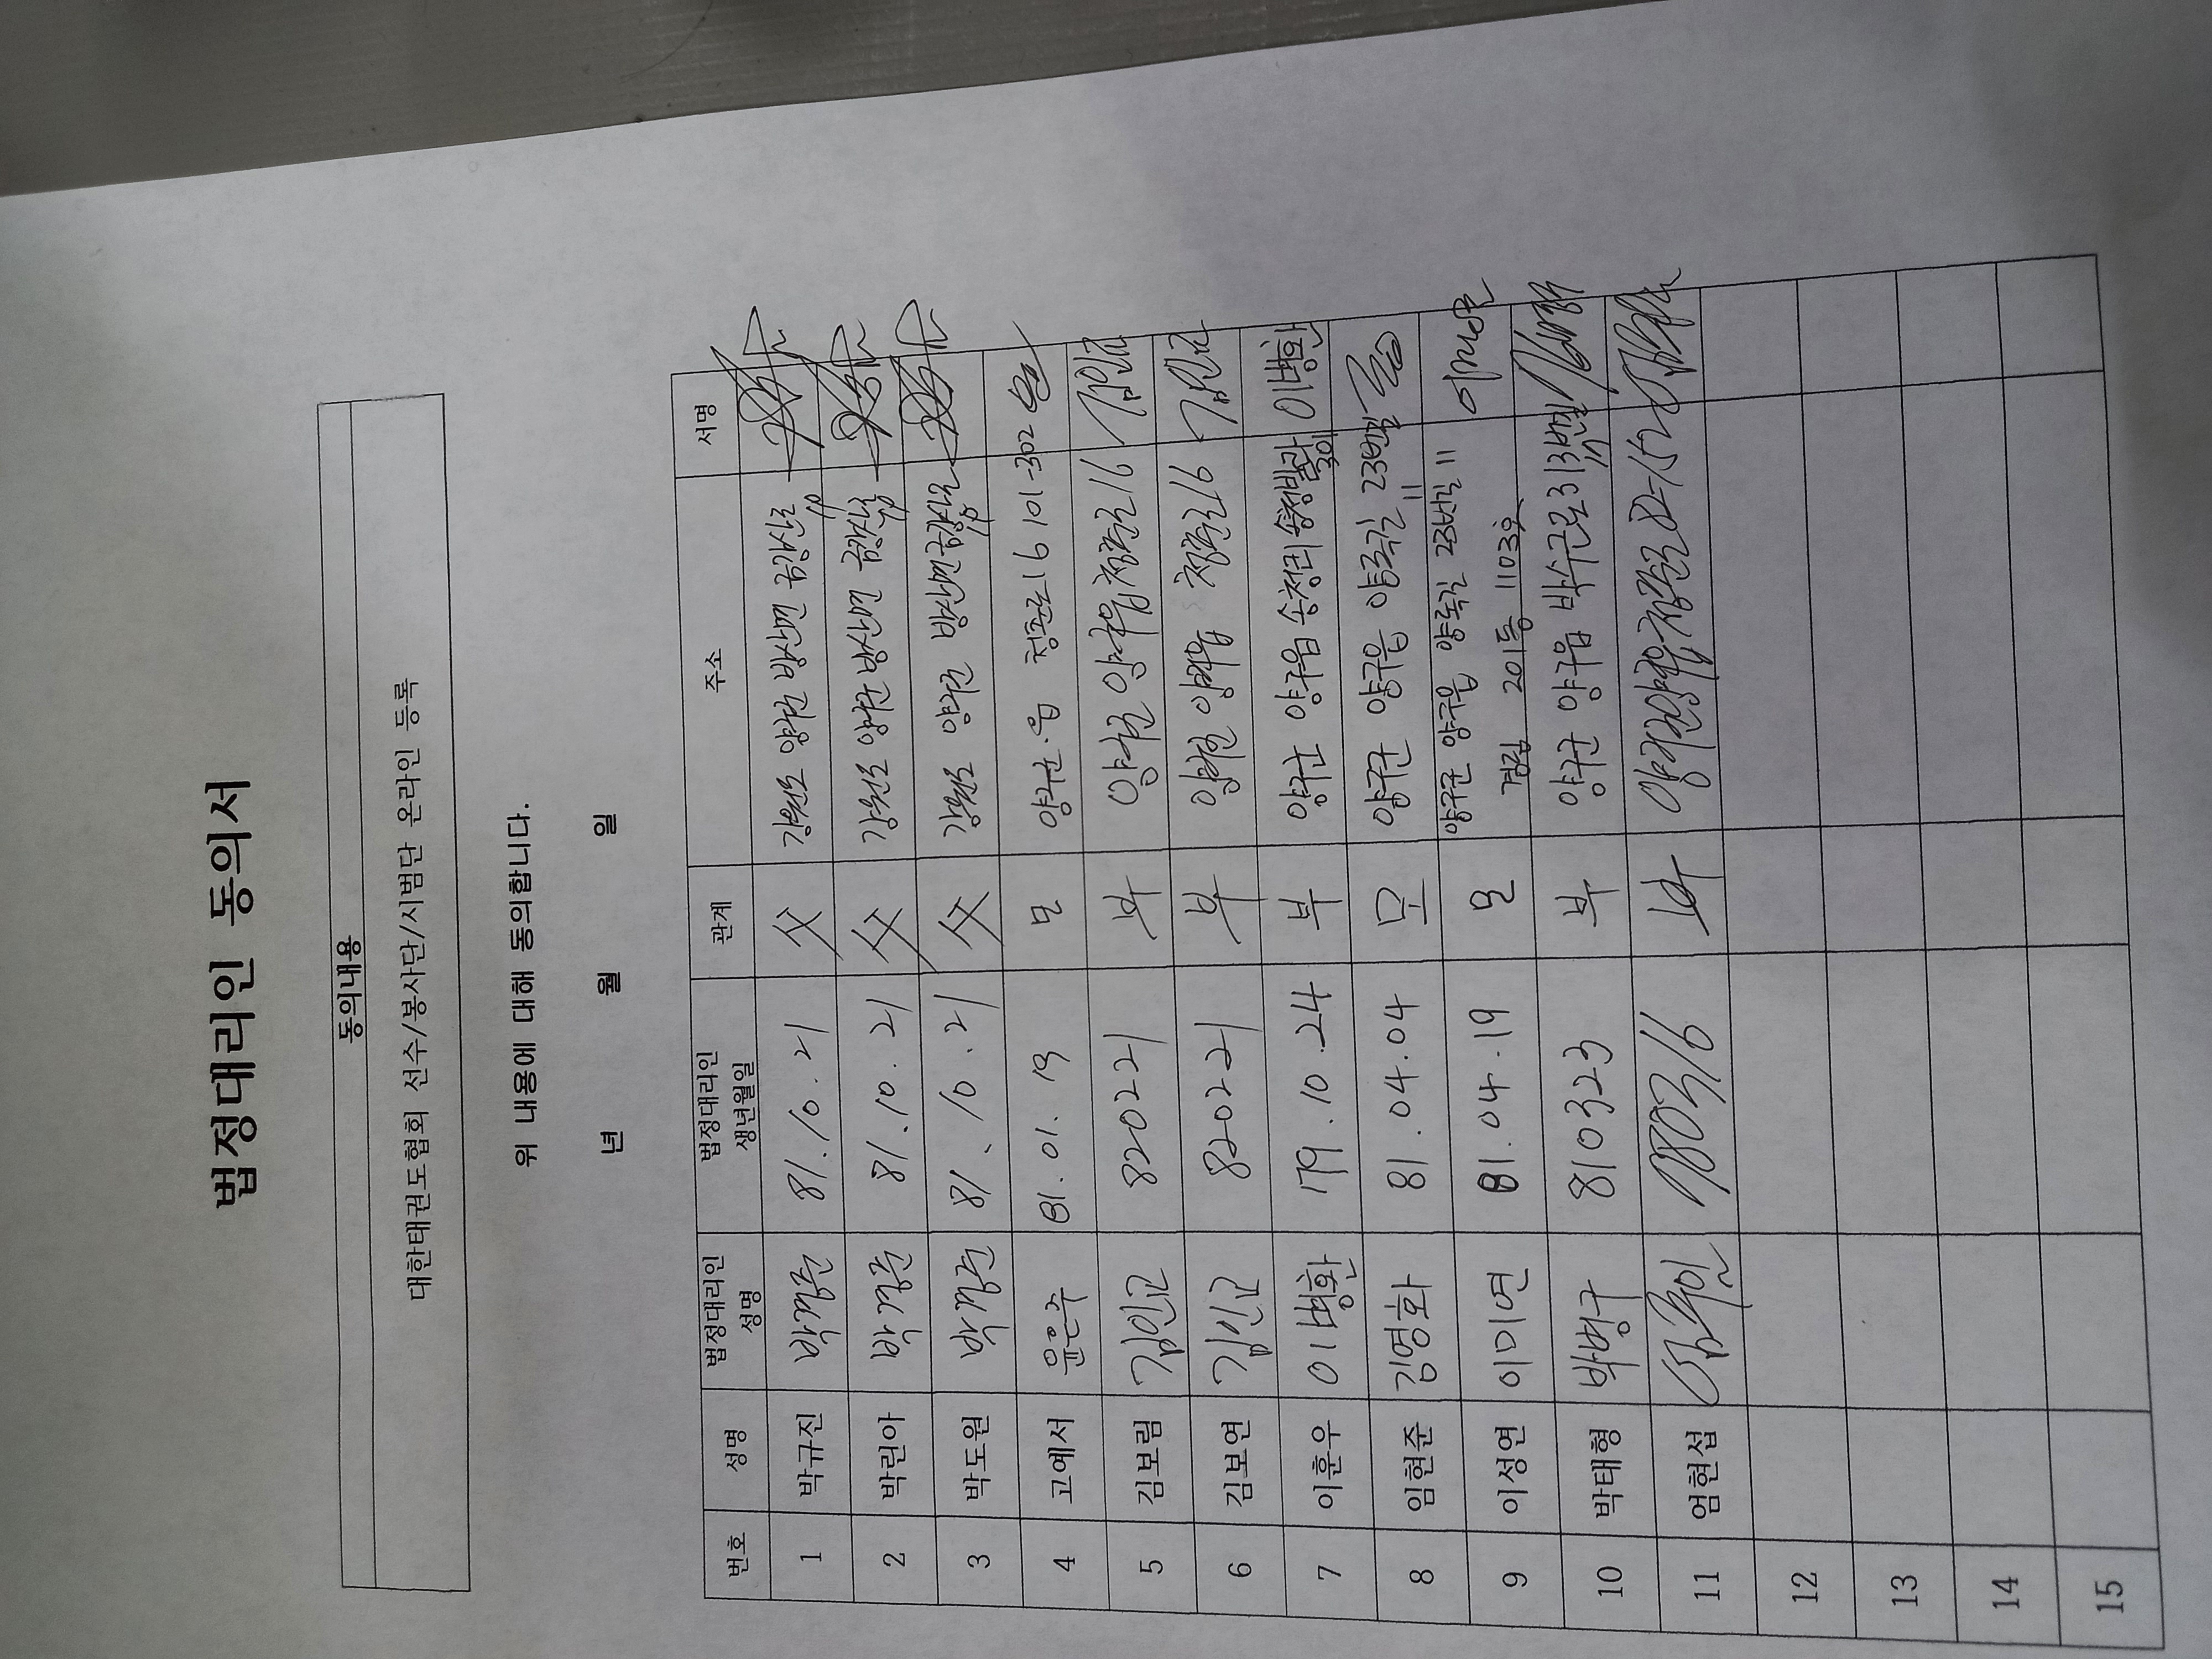 법정대리인 동의서
동의내용
대한태권도협회 선수/봉사단/시범단 온라인 등록
위 내용에 대해 동의합니다.
년 월 일
번호 성명 법정대리인 성명 법정대리인 생년월일 관계 주소 서명
1 박규진 81.10.21 父 강원도 양구군 방산면
2 박린아 81.10.21 父 강원도 양구군 방산면
3 박도원 81.10.21 父 강원도 양구군 방산면
4 고예서 윤은주 81.01.19 모 양구군.읍 청춘로16 101-302
5 김보림 김인교 820221 부 양구군 양구읍 청춘로16 김인교
6 김보연 김인교 820221 부 양구군 양구읍 청춘로16 김인교
7 이훈우 이병환 79.10.24 부 양구군 양구읍 송청리 송청빌라 301 이병환
8 임현준 김영화 81.04.04 모 양구군 양구읍 양록길 23번길 11
9 이성연 이미연 81.04.19 모 양구군 양구읍 양록길 23번길 11
201동 1103호 이미연
10 박태형 박병구 810323 부 양구군 양구읍 박수근로313번길
11 엄현섭 780316 부 양구군 양구읍 청춘로
12
13
14
15